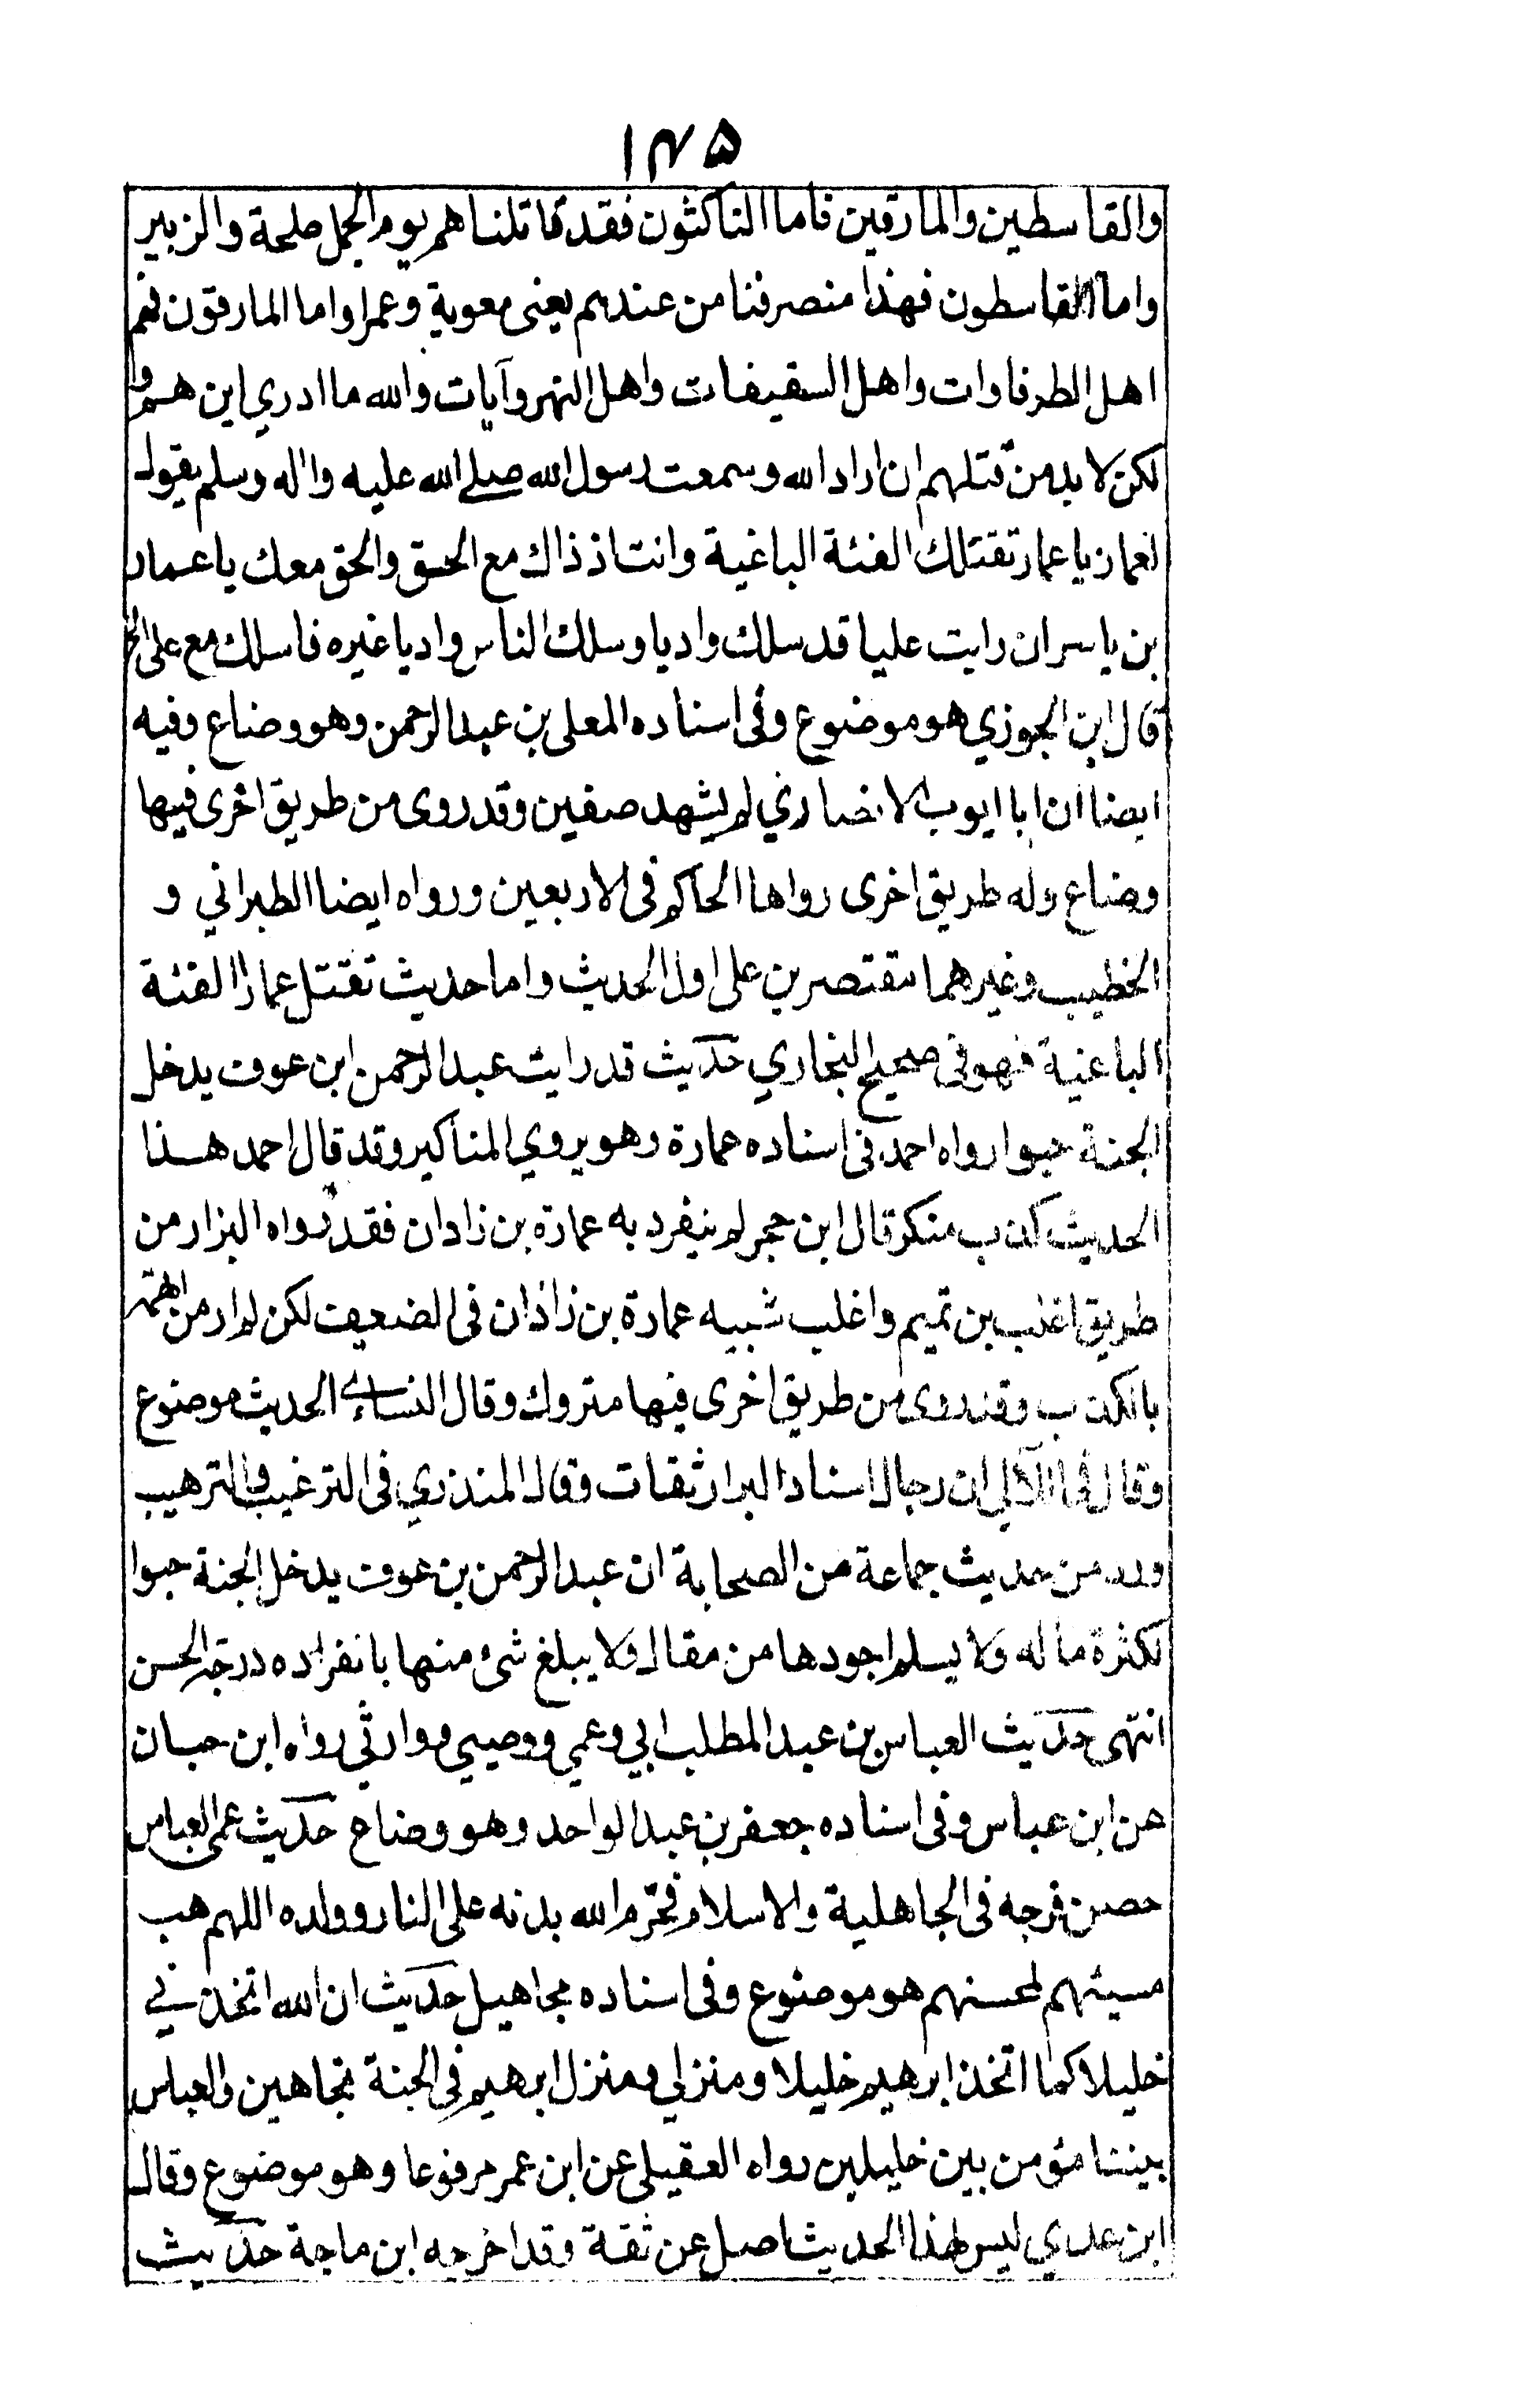 ١٤٥
والقاسطين والمارقين فاما الناكثون فقد قاتلناهم يوم الجمل طلحة والزبير
واما القاسطون فهذا منصرفنا من عندهم يعنى معوية وعمرا واما المارقون فهم
اهل الطرفاوات واهل السقيفات واهل النهروآيات والله ما ادري اين هم و
لكن لا بد من قتلهم ان اراد الله وسمعت رسول الله صلے الله عليه واله وسلم يقول
لعمار يا عمار تقتلك الفئة الباغية وانت اذ ذاك مع الحق والحق معك يا عمار
بن ياسر ان رايت عليا قد سلك واديا وسلك الناس واديا غيره فاسلك مع على الخ
قال ابن الجوزي هو موضوع وفى اسناده المعلى بن عبد الرحمن وهو وضاع وفيه
ايضا ان ابا ايوب الانصاري لم يشهد صفين وقد روى من طريق اخرى فيها
وضاع وله طريق اخرى رواها الحاكم فى الاربعين ورواه ايضا الطبراني و
الخطيب وغيرهما مقتصرين على اول الحديث واما حديث تقتل عمارا الفئة
الباغية فهو فى صحيح البخاري حديث قد رايت عبد الرحمن ابن عوف يدخل
الجنة حبوا رواه احمد فى اسناده عمارة وهو يروي المناكير وقد قال احمد هذا
الحديث كذب منكر قال ابن حجر لم ينفرد به عمارة بن زادان فقد رواه البزار من
طريق اغلب بن تميم واغلب شبيه عمارة بن زاذان فى الضعيف لكن لم ار من اتهمه
بالكذب وقد روى من طريق اخرى فيها متروك وقال النسائے الحديث موضوع
وقال فى اللآلى ان رجال اسناد البزار ثقات وقال المنذري فى الترغيب والترهيب
ورد من حديث جماعة من الصحابة ان عبد الرحمن بن عوف يدخل الجنة حبوا
لكثرة ماله ولا يسلم اجودها من مقال ولا يبلغ شئ منها بانفراده درجة الحسن
انتهى حديث العباس بن عبد المطلب ابي وعمي ووصيي ووارثي رواه ابن حبان
عن ابن عباس وفى اسناده جعفر بن عبد الواحد وهو وضاع حديث عمى العباس
حصن فرجه فى الجاهلية والاسلام فحرّم الله بدنه على النار وولده اللهم هب
مسيئهم لمحسنهم هو موضوع وفى اسناده مجاهيل حديث ان الله اتخذني
خليلا كما اتخذ ابرهيم خليلا ومنزلي ومنزل ابرهيم فى الجنة تجاهين والعباس
بيننا مؤمن بين خليلين رواه العقيلى عن ابن عمر مرفوعا وهو موضوع وقال
ابن عدي ليس لهذا الحديث اصل عن ثقة وقد اخرجه ابن ماجة حديث